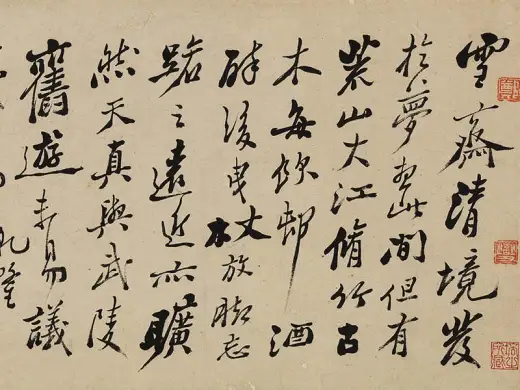 雪齋清境發
於夢此間但有
荒山大江脩竹古
木每飲邨酒
醉後曳杖放脚忘
路之遠近亦曠
然天真與武陵
舊遊未易議